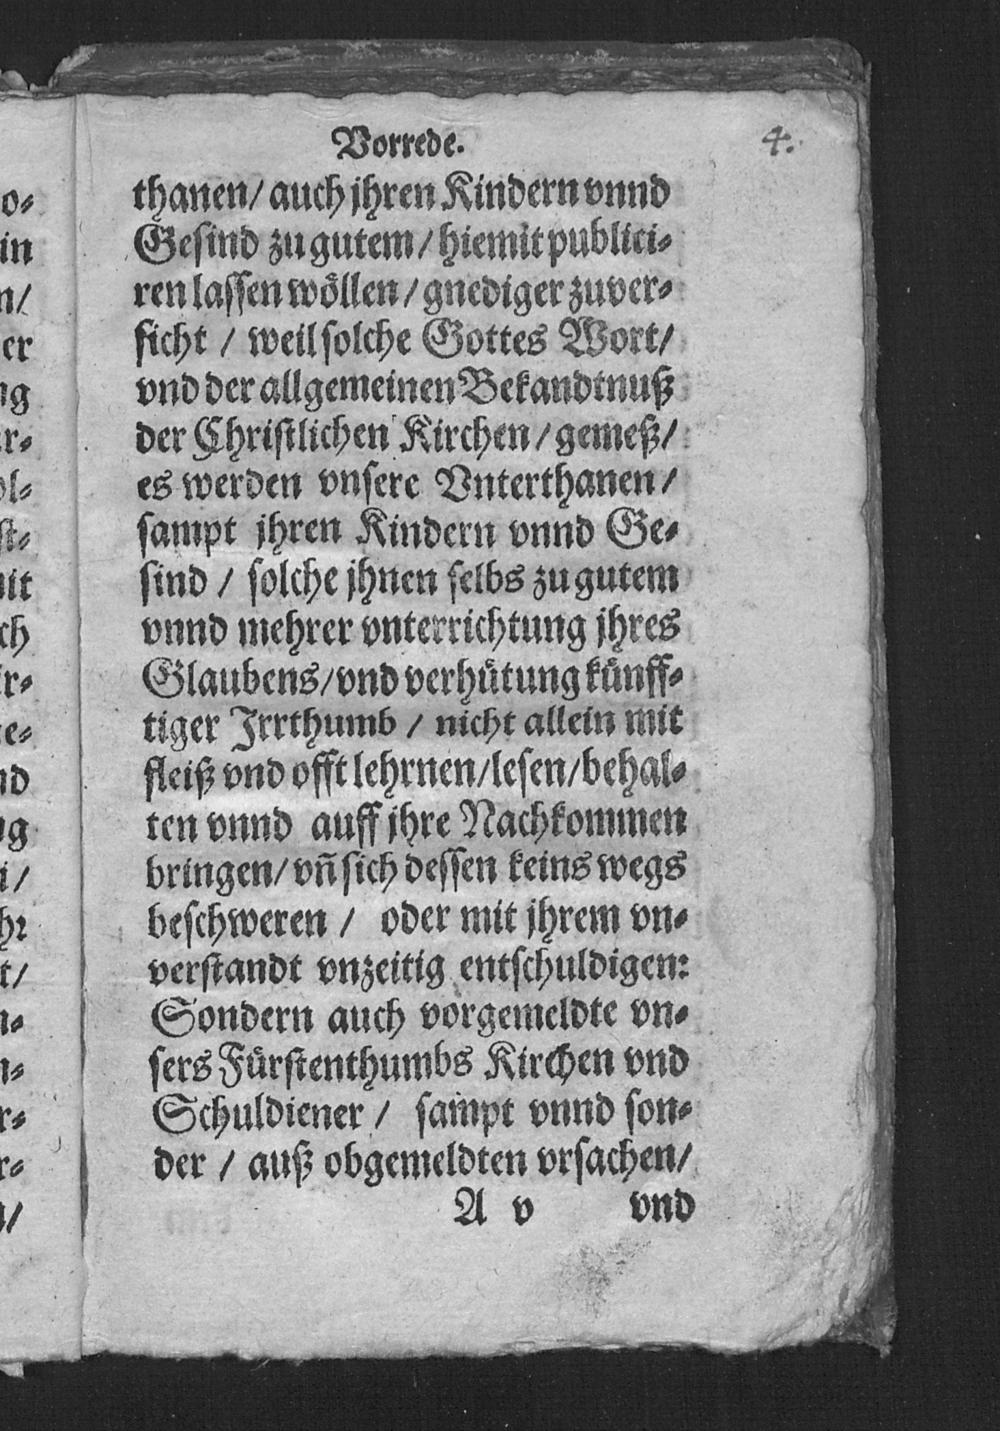 Vorrede.
4.
thanen/ auch jhren Kindern vnnd
Gesind zu gutem / hiemit publici-
ren lassen wöllen / gnediger zuver-
sicht / weil solche Gottes Wort/
vnd der allgemeinen Bekandtnuß
der Christlichen Kirchen / gemeß/
es werden vnsere Vnterthanen /
sampt jhren Kindern vnnd Ge-
sind / solche jhnen selbs zu gutem
vnnd mehrer vnterrichtung jhres
Glaubens/ vnd verhütung künff-
tiger Irrthumb / nicht allein mit
fleiß vnd offt lehrnen/lesen/behal-
ten vnnd auff jhre Nachkommen
bringen/ vñ sich dessen keins wegs
beschweren / oder mit jhrem vn-
verstandt vnzeitig entschuldigen:
Sondern auch vorgemeldte vn-
sers Fürstenthumbs Kirchen vnd
Schuldiener / sampt vnnd son-
der / auß obgemeldten vrsachen/
A v vnd